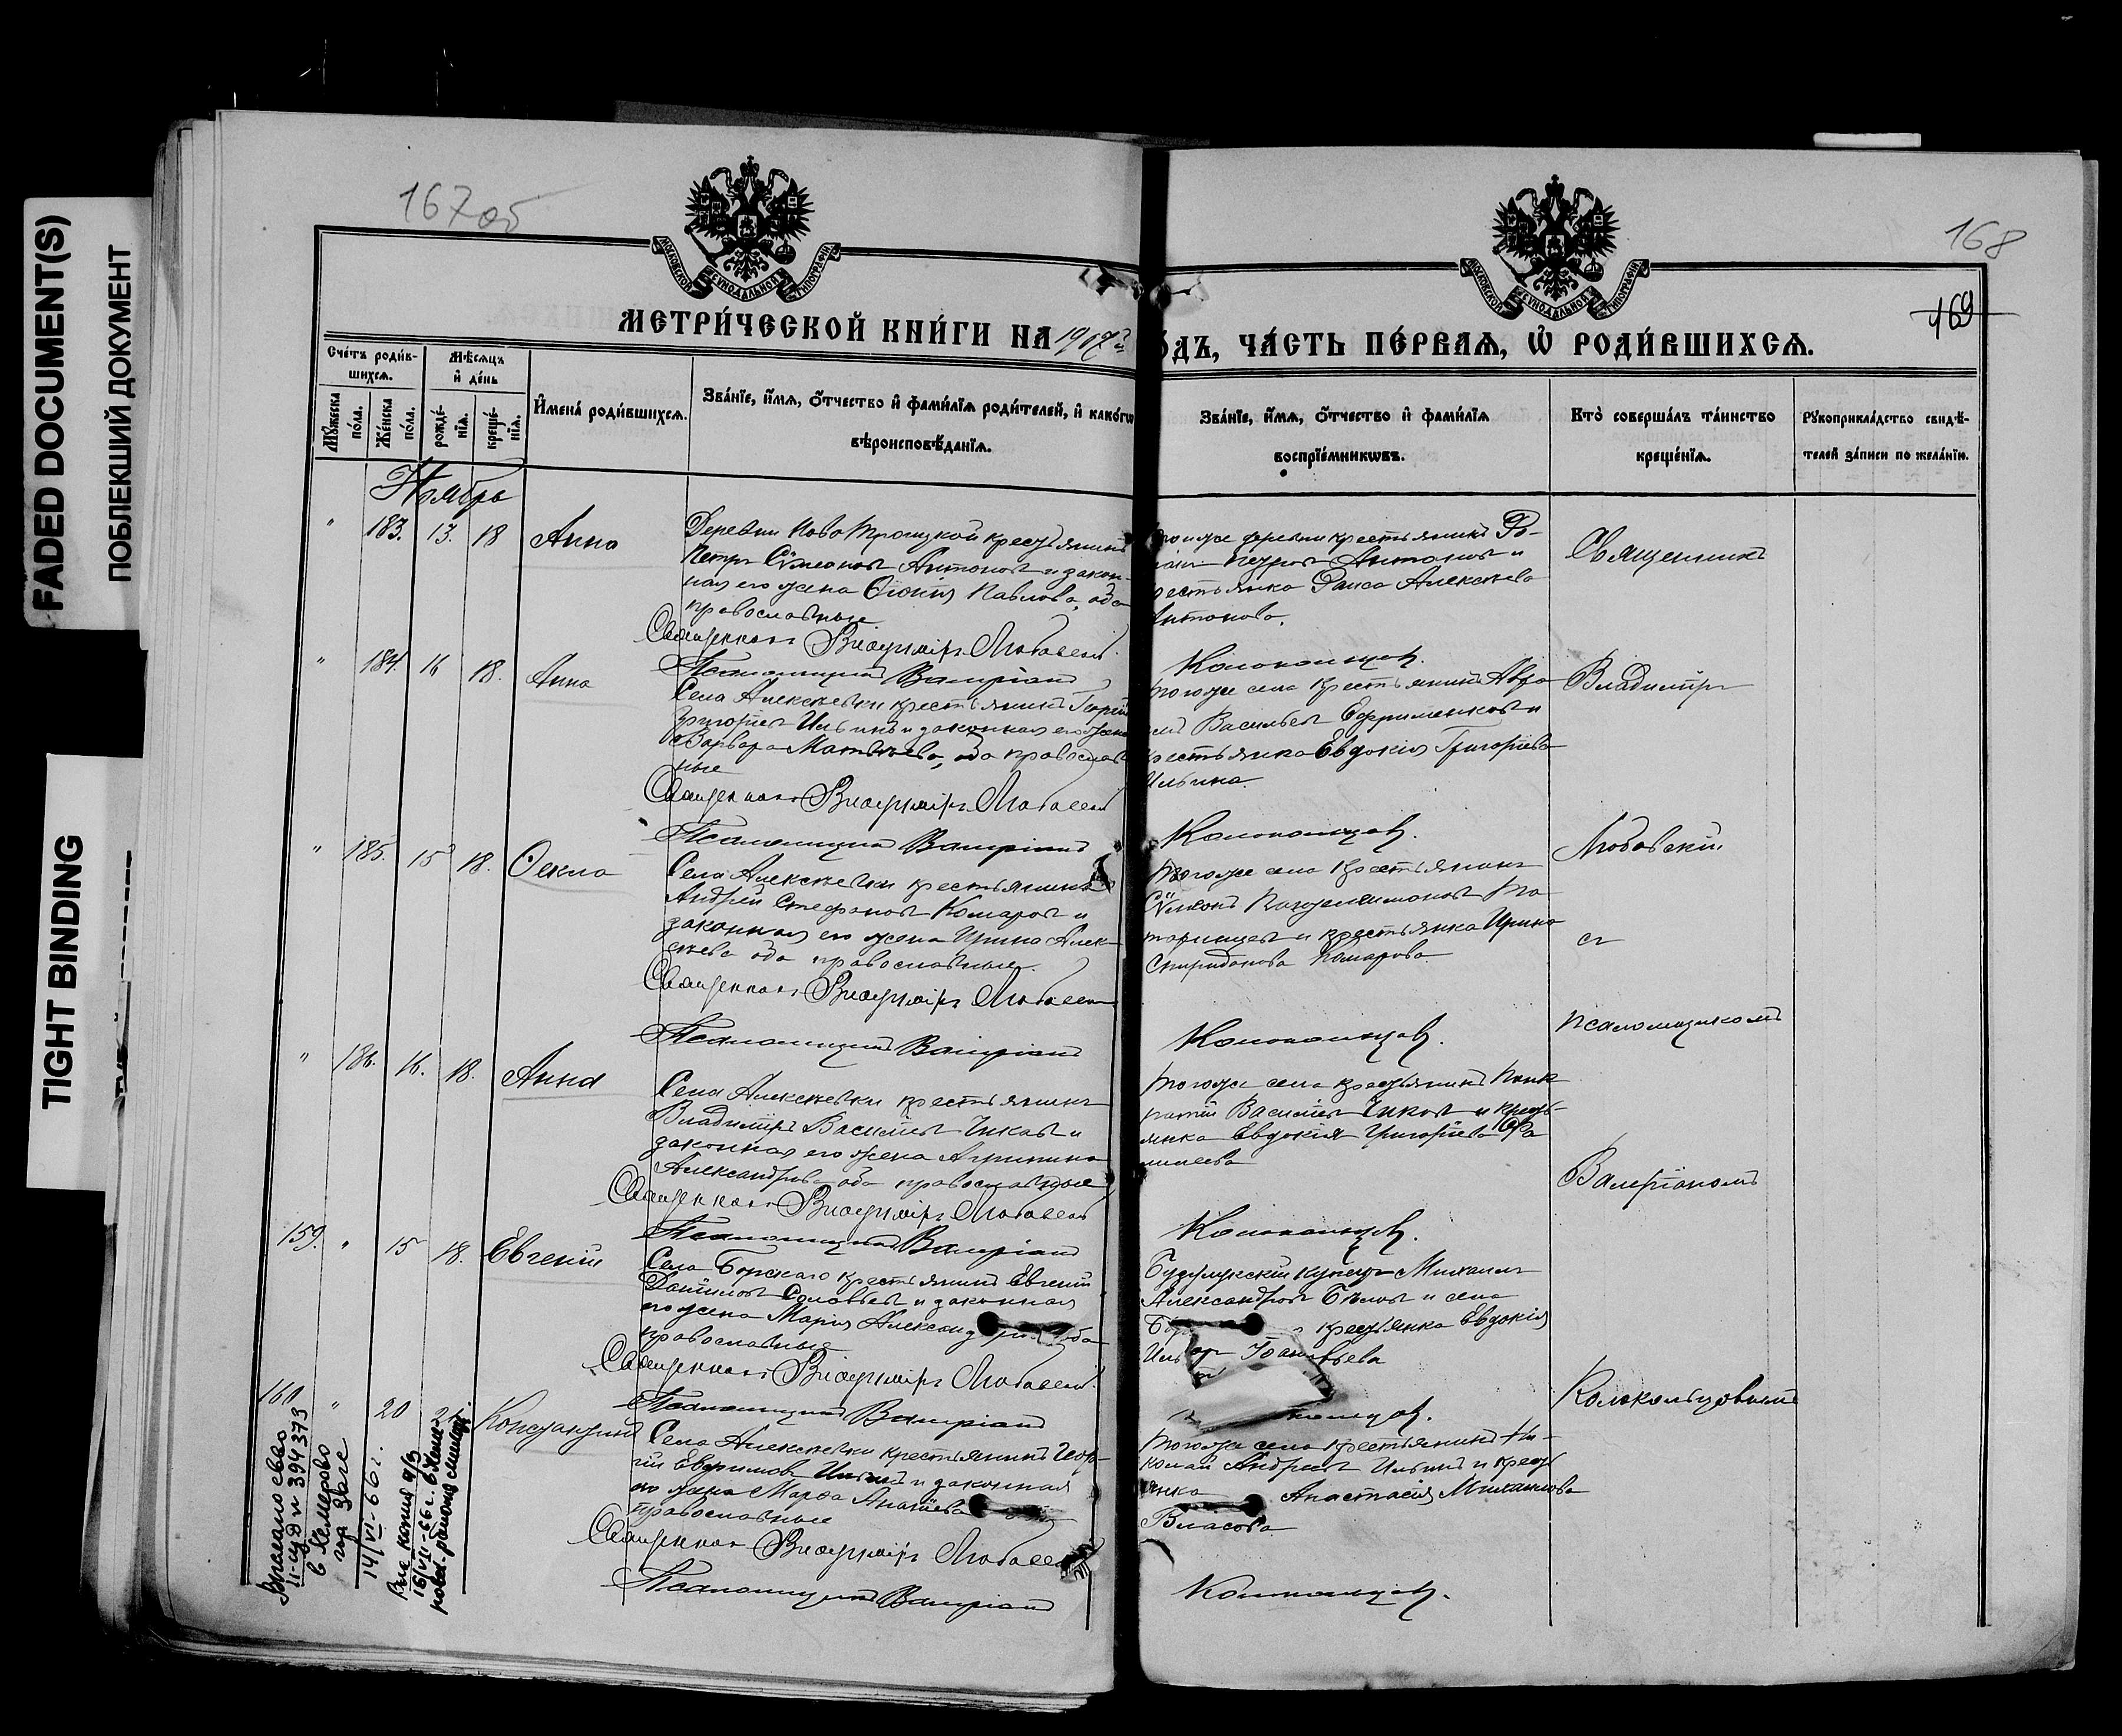 FADED DOCUMENT(S)
ПОБЛЕКШИЙ ДОКУМЕНТ
TIGHT BINDING
167об
168
169
МОСКОВСКОЙ СѴНОДАЛЬНОЙ ТИПОГРАФІИ
МОСКОВСКОЙ СѴНОДАЛЬНОЙ ТИПОГРАФІИ
МЕТРИ́ЧЕСКОЙ КНИ́ГИ НА 1907
ДЪ, ЧА́СТЬ ПЕ́РВАѦ, Ѡ҆ РОДИ́ВШИХСѦ.
Сче́тъ роди́в-
шихсѧ.
Мꙋ́жеска по́ла.
Же́нска по́ла.
Мѣ́сѧцъ
и҆ де́нь
рожде́-
нїѧ.
креще́-
нїѧ.
И҆мена̀ роди́вшихсѧ.
Зва́нїе, и҆́мѧ, ѻ҆́тчество и҆ фами́лїѧ роди́телей, и҆ како́гѡ
вѣроисповѣ́данїѧ.
Зва́нїе, и҆́мѧ, ѻ҆́тчество и҆ фами́лїѧ
воспрїе́мникѡвъ.
Кто̀ соверша́лъ та́инство
креще́нїѧ.
Рꙋкоприкла́дство свидѣ́-
телей за́писи по жела́нїю.
Ноябрь
" 183. 13. 18 Анна
Деревни Ново Троицкой крестьянинъ
Петръ Сѵмеоновъ Антоновъ и закон-
ная его жена Павлова, оба
православные
Священникъ Владиміръ Любавскій
Псаломщикъ Валеріанъ
тоиже деревни крестьянинъ
Петровъ Антоновъ и
крестьянка Раиса Алексѣева
Антонова.
Колокольцовъ.
Священникъ
" 184. 16 18. Анна
Села Алексѣевки крестьянинъ Георгій
Григорьевъ Ильинъ и законная его жена
Варвара Матвѣева, оба православ
ные
Священникъ Владиміръ Любавскій
Псаломщикъ Валеріанъ
тогоже села крестьянинъ
Васильевъ Ефрименковъ и
крестьянка Евдокія Григорьева
Ильина.
Колокольцовъ.
Владиміръ
" 185. 15 18. Ѳекла
Села Алексѣевки крестьянинъ
Андрей Стефановъ Комаровъ и
законная его жена Ирина Алек-
сѣева оба православные.
Священникъ Владиміръ Любавскій
Псаломщикъ Валеріанъ
тогоже села крестьянинъ
Сѵмеонъ Пантелеимоновъ Та
таринцевъ и крестьянка Ирина
Спиридонова Комарова
Колокольцовъ.
Любавскій
съ
псаломщикомъ
" 186. 16. 18. Анна
Села Алексѣевки крестьянинъ
Владиміръ Васильевъ Чиковъ и
законная его жена Агрипина
Александрова оба православные
Священникъ Владиміръ Любавскій
Псаломщикъ Валеріанъ
тогоже села крестьянинъ Панк
ратій Васильевъ Чиковъ и кресть-
янка Евдокія Григорьева
Колокольцовъ.
Валеріаномъ
159. " 15 18. Евгеній
Села Борскаго крестьянинъ Евгеній
Даніиловъ Соловьевъ и законная
его жена Марія оба
православные
Священникъ Владиміръ Любавскій
Псаломщикъ Валеріанъ
Бузулукскій купецъ Михаилъ
Александровъ Бѣловъ и села
крестьянка Евдокія
Колокольцовымъ
160 " 20 21. Константинъ
Села Алексѣевки крестьянинъ Геор-
гій Евфимовъ Ильинъ и законная
его жена Марѳа Ананьева
православные
Священникъ Владиміръ Любавскій
Псаломщикъ Валеріанъ
тогоже села крестьянинъ Ни-
колай Андреевъ Ильинъ и кресть
янка Анастасія Михаилова
Власова
Колокольцовъ.
Выслано св-во
II-ЦД № 394373
в Кемерово
гор Загс
14/VI-66г.